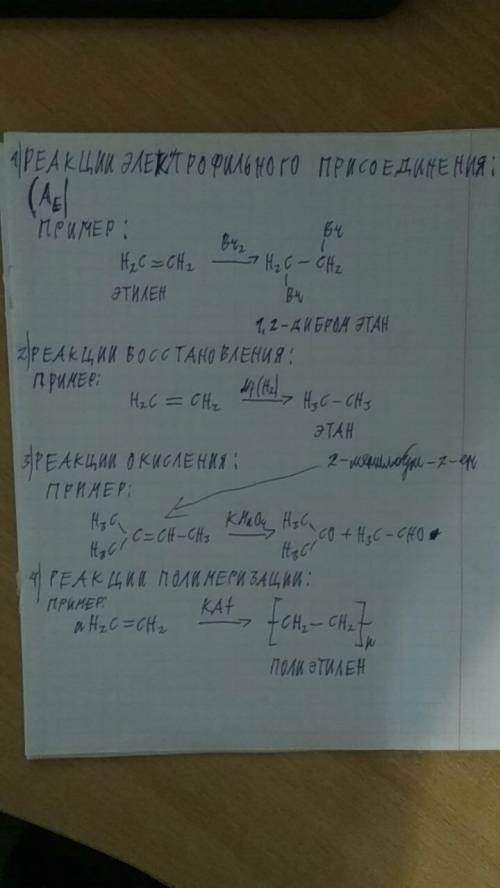 1) РЕАКЦИИ ЭЛЕКТРОФИЛЬНОГО ПРИСОЕДИНЕНИЯ:
(AE)
ПРИМЕР:
H2C=CH2 Br2→ H2C–CH2
Br
Br
ЭТИЛЕН
1,2-ДИБРОМ ЭТАН
2) РЕАКЦИИ ВОССТАНОВЛЕНИЯ:
ПРИМЕР:
H2C=CH2 (H2)→ H3C–CH3
ЭТАН
3) РЕАКЦИИ ОКИСЛЕНИЯ:
2-метилбут-2-ен
ПРИМЕР:
H3C H3C C=CH–CH3 KMnO4→ H3C H3C CO + H3C–CHO
4) РЕАКЦИИ ПОЛИМЕРИЗАЦИИ:
ПРИМЕР:
nH2C=CH2 KAt→ [CH2–CH2]n
ПОЛИЭТИЛЕН